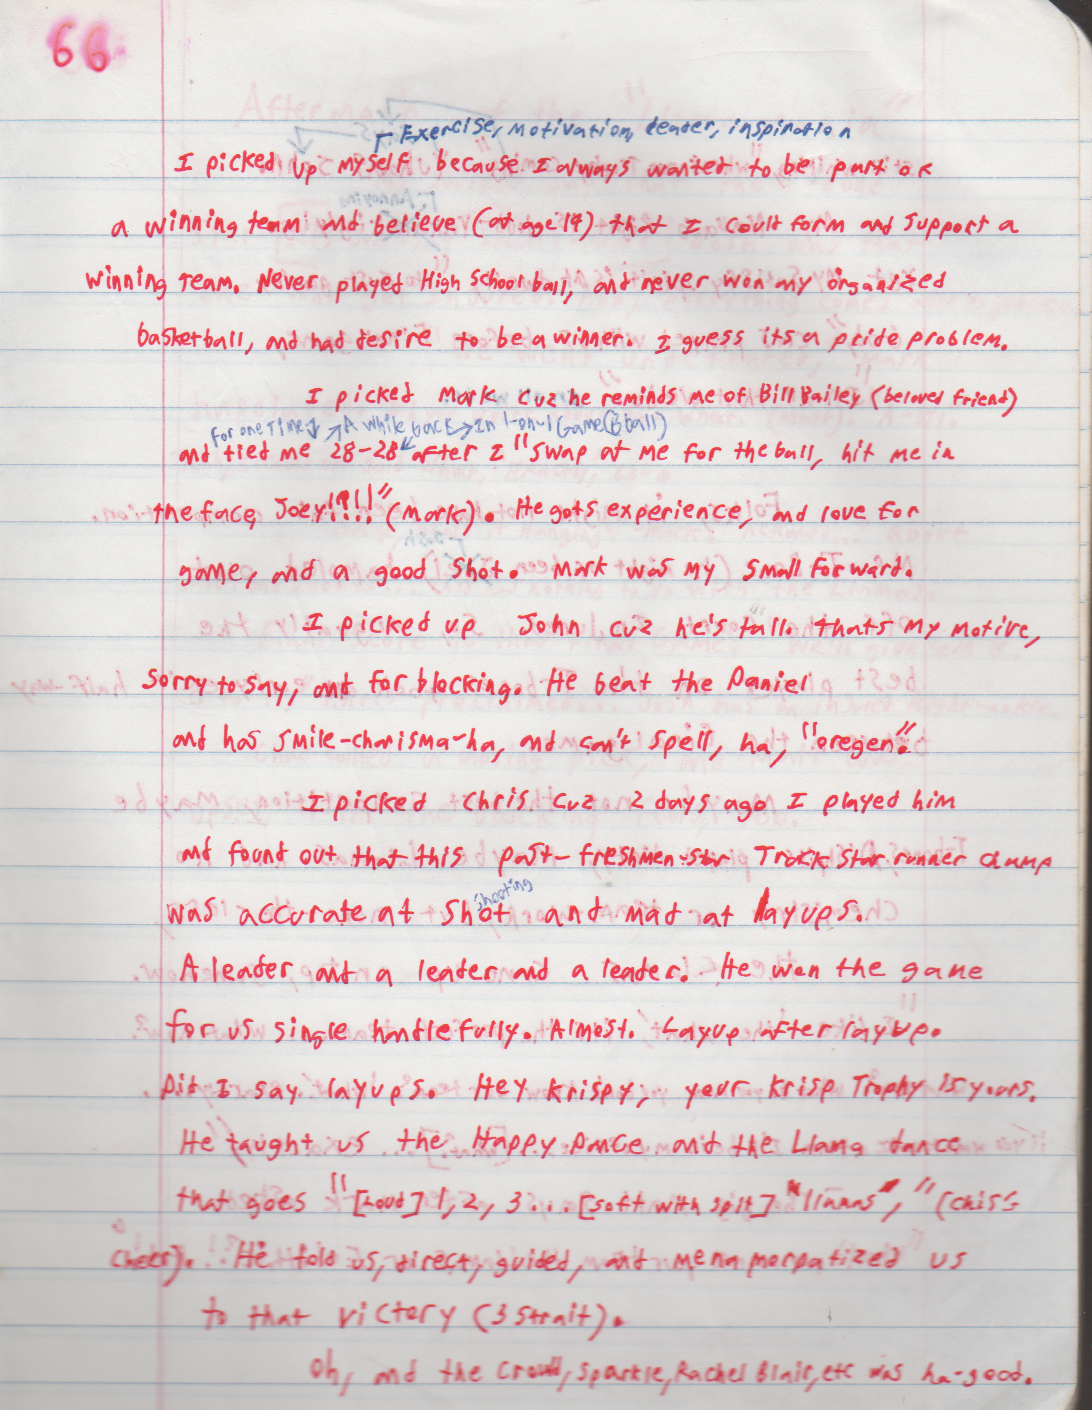 66
Exercise, Motivation, Leader, inspiration
I picked up myself because I always wanted to be part of
a winning team and believe (at age 19) that I could form and support a
winning Team. Never played High School ball, and never won any organized
basketball, and had desire to be a winner. I guess its a pride problem.
I picked Mark cuz he reminds me of Bill Bailey (beloved friend)
For one Time A while back In 1-on-1 Game (Bball)
and tied me 28-28 after I "swap at me for the ball, hit me in
the face, Joey!?!!" (Mark). He gots experience, and love for
game, and a good shot. Mark was my small forward.
I picked up John cuz he's tall. thats my motive,
Sorry to say, and for blocking. He beat the Daniel
and has smile-charisma-ha, and can't spell, ha, "oregen".
I picked Chris cuz 2 days ago I played him
and found out that this past-freshmen star Track star runner champ
shooting
was accurate at shot and mad at layups.
A leader and a leader and a leader. He won the game
for us single handlefully. Almost. Layup after layup.
Did I say layups. Hey Krispy, your Krisp Trophy is yours.
He taught us the Happy Dance and the Llama dance
that goes "[Loud] 1, 2, 3... [soft with spit] "llamas"," (Chis's
Cheer). He told us, direct, guided, and menamorpatized us
to that victery (3 strait).
Oh, and the crowd, Sparkle, Rachel Blair, etc was ha-good.